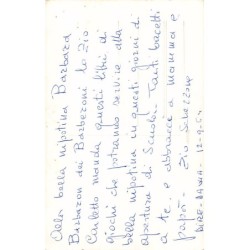 Alla bella nipotina Barbara
Barbaron dei Barberoni lo zio
Carletto manda questi libri di
giochi che potranno servire alla
bella nipotina in questi giorni di
apertura di Scuola. Tanti bacetti
a te e abbracci a mamma e
papà - Zio
12-9-